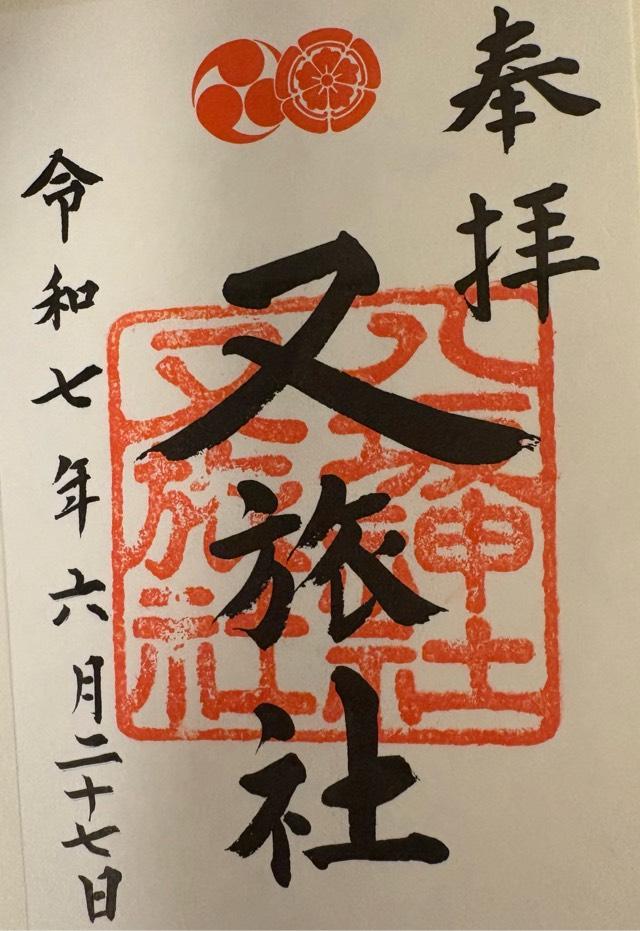 奉拝
又旅社
八坂神社
又旅社
令和七年六月二十七日